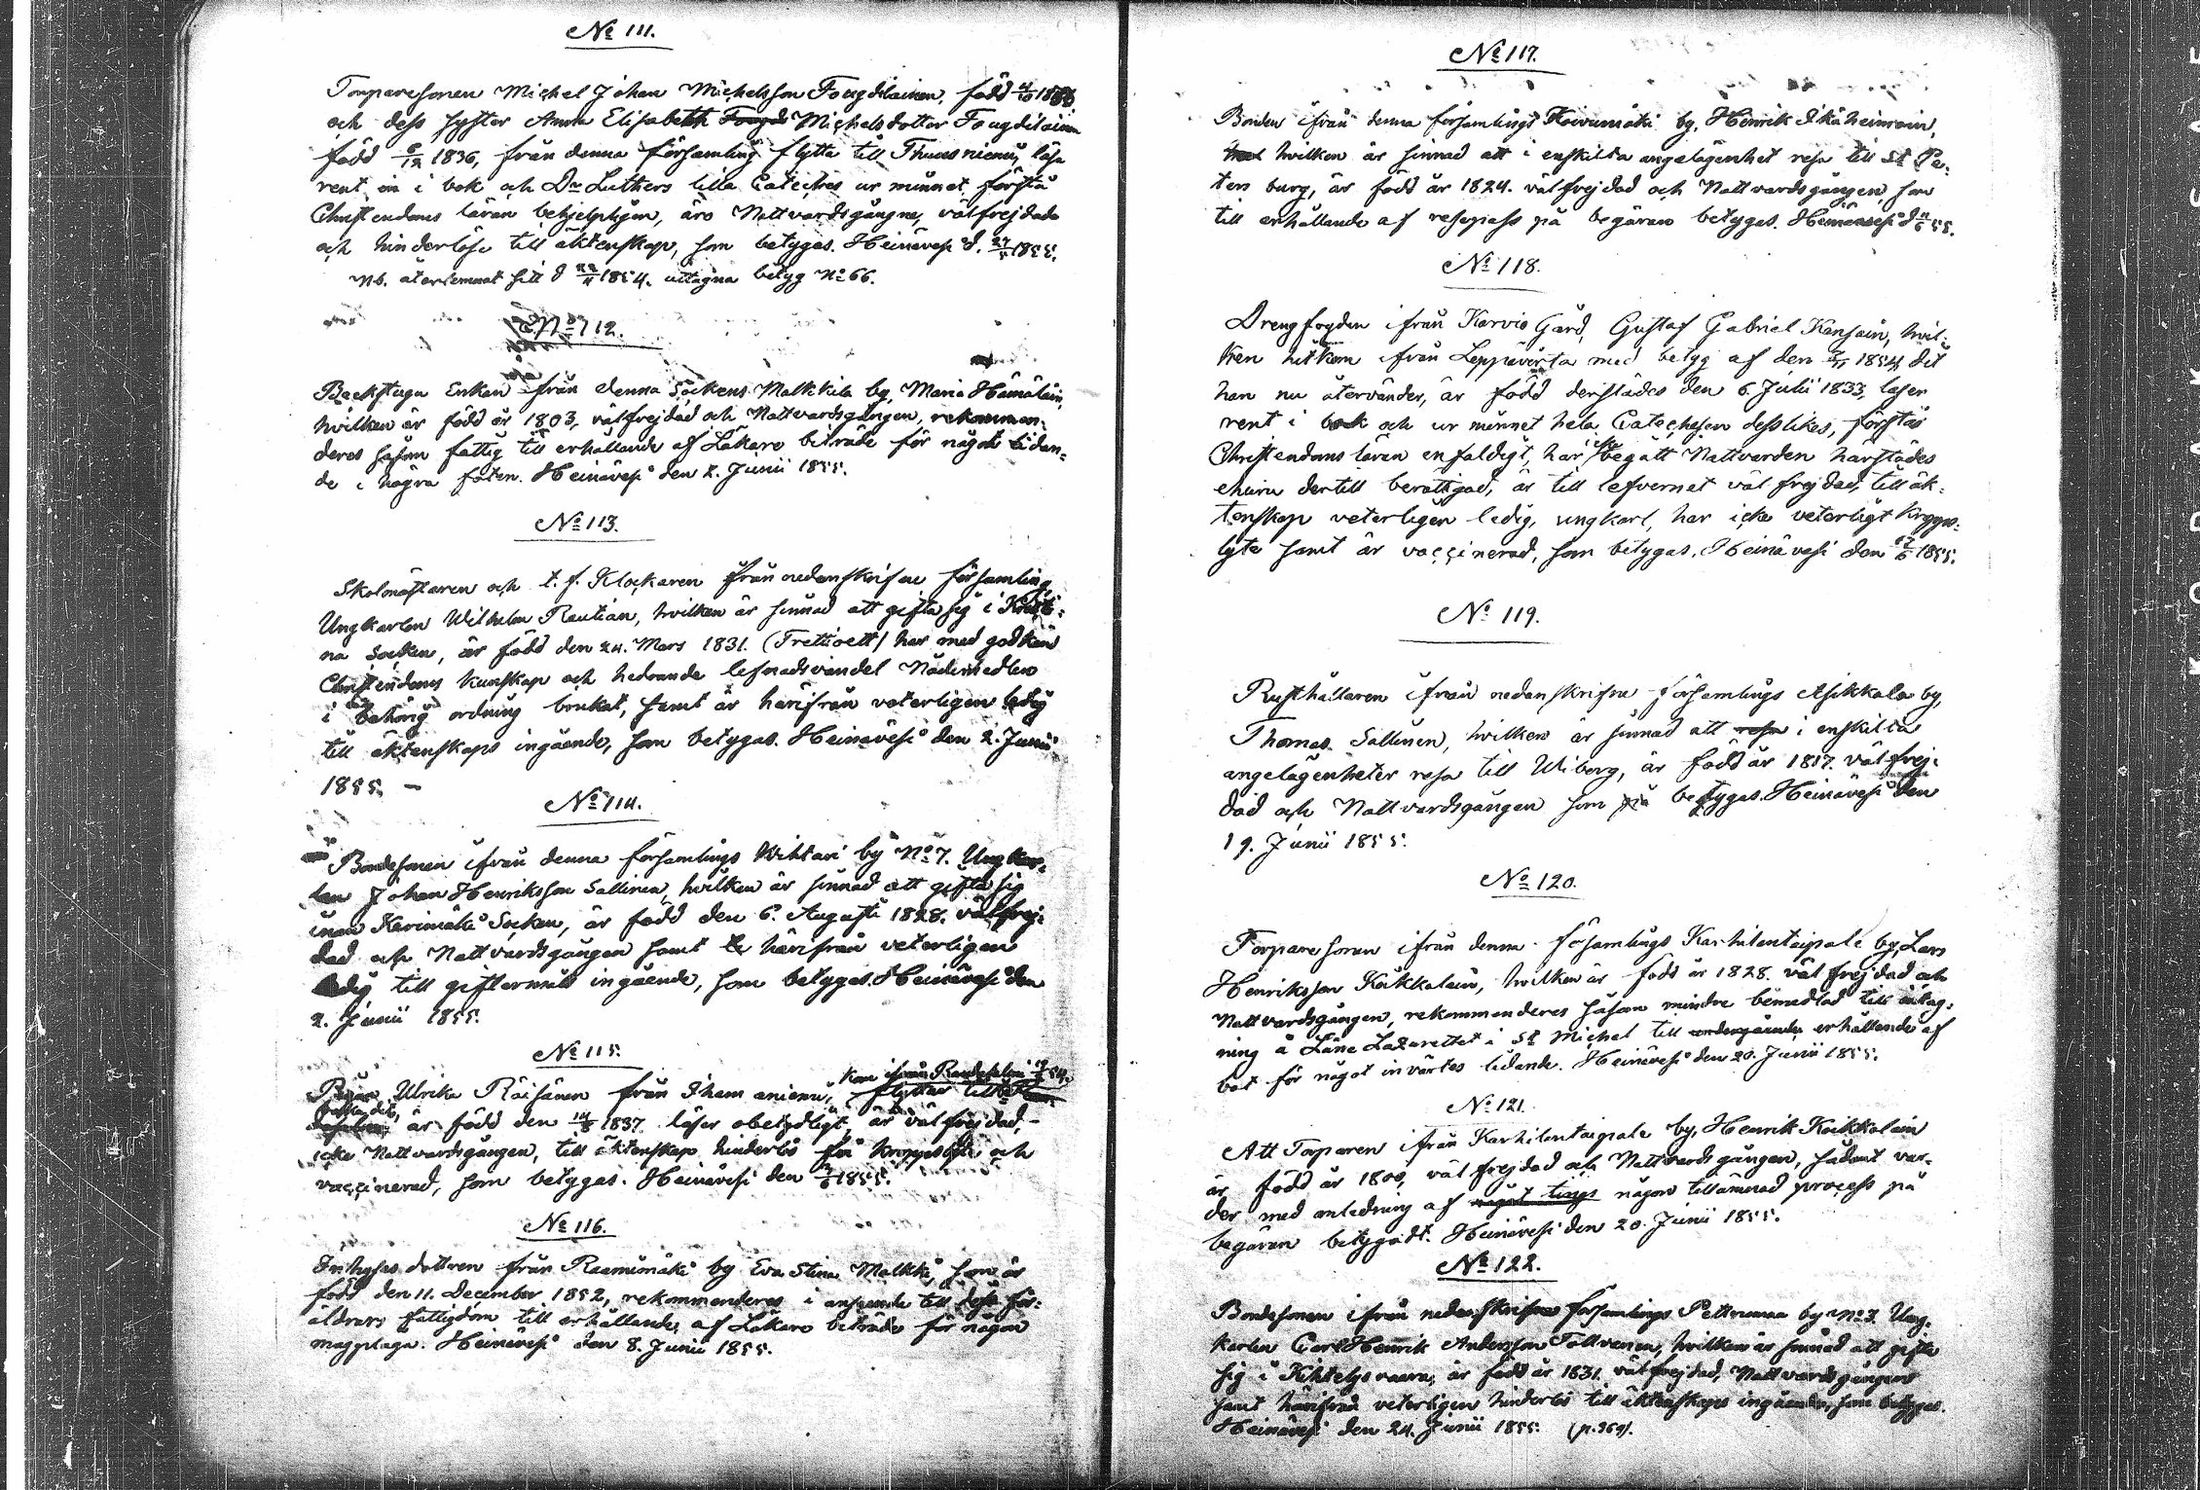 No 111.
Torparesonen Michel Johan Michelsson Fougdilainen, född
och dess syster Anna Elisabeth Michelsdotter Fougdilainen
född 6/12 1836, från denna församling flytta till Thuusniemi, läsa
rent in i bok och Dr Luthers lilla Cateches ur minnet, förstå
Christendoms läran behjelpligen, äro Nattvardsgångne, välfrejdade
och hinderlöse till äktenskap, som betygas. Heinävesi d. 1855.
Nb. återlemnat sitt d 1854. uttagna betyg No 66.
No 112.
Backstugu Enkan från denna Sockens Malkkila by, Maria Hämäläin,
hvilken är född år 1803, välfrejdad och Nattvardsgången, rekommen-
deras såsom fattig till erhållande af Läkare biträde för något lidan-
de i några föten. Heinävesi den 2. Junii 1855.
No 113.
Skolmästaren och t. f. Klockaren från nedanskrifne församling,
Ungkarlen Wilhelm Rautian, hvilken är sinnad att gifta sig i Kristi-
na Socken, är född den 24. Mars 1831. (Trettioett) har med godkänd
Christendoms kunskap och hedrande lefnadsvandel Nådemedlen
i behörig ordning brukat, samt är härifrån veterligen ledig
till äktenskaps ingående, som betygas. Heinävesi den 2. Junii
1855. –
No 114.
Bondesonen ifrån denna församlings Wihtari by No 7. Ungkar-
len Johan Henriksson Sallinen, hvilken är sinnad att gifta sig
inom Kerimäki Socken, är född den 6. Augusti 1828. välfrej-
dad och Nattvardsgången samt härifrån veterligen
ledig till giftermåls ingående, som betygas. Heinävesi den
2. Junii 1855.
No 115.
kom ifrån Randasalmi
Pigan Ulrika Räisänen från Ihamaniemi, flyttar till
är född den 14/8 1837. läser obetydligt, är välfrejdad, –
icke Nattvardsgången, till äktenskap hinderlös, kroppslyte och
vaccinerad, som betygas. Heinävesi den 1855.
No 116.
Inhyses dottren från Raamimäki by Eva Stina Malkki, som är
född den 11. December 1852, rekommenderas i anseende till dess för-
äldrars fattigdom till erhållande af Läkare biträde för någon
magplåga. Heinävesi den 8. Junii 1855.
No 117.
Bonden ifrån denna församlings Koivumäki by, Henrik Ikäheimoin,
hvilken är sinnad att i enskilta angelägenhet resa till St Pe-
tersburg, är född år 1824. välfrejdad och Nattvardsgången, som
till erhållande af resepass på begäran betygas. Heinävesi d 55.
No 118.
Drengfogden ifrån Karvio Gård, Gustaf Gabriel Kansain, hvil-
ken hitkom ifrån Leppävirta med betyg af den 1854, dit
han nu återvänder, är född derstädes den 6. Julii 1833, läser
rent i bok och ur minnet hela Catechesen desslikes, förstår
Christendoms läran enfaldigt, har icke begått Nattvarden härstädes
ehuru dertill berättigad, är till lefvernet väl frejdad, till äk-
tenskap veterligen ledig, ungkarl, har icke veterligt kropps-
lyte samt är vaccinerad, som betygas. Heinävesi den 1855.
No 119.
Rusthållaren ifrån nedanskrifne församlings Asikkala by,
Thomas Sallinen, hvilken är sinnad att resa i enskilta
angelägenheter resa till Wiborg, är född år 1817. välfrej-
dad och Nattvardsgången som på betygas. Heinävesi den
19. Junii 1855.
No 120.
Torpare sonen ifrån denna församlings Karhilantaipale by, Lars
Henriksson Käkkäläin, hvilken är född år 1828. välfrejdad och
Nattvardsgången, rekommenderas såsom mindre bemedlad till intag-
ning å Läne Lazarettet i St Michel till erhållande af
bot för något invärtes lidande. Heinävesi den 20. Junii 1855.
No 121.
Att Torparen ifrån Karhilantaipale by, Henrik Käkkäläin
är född år 1800, väl frejdad och Nattvards gången, sådant var-
der med anledning af något tings någon tillämnad process på
begäran betygadt. Heinävesi den 20. Junii 1855.
No 122.
Bondesonen ifrån nedanskrifne församlings Petrumaa by No 3. Ung-
karlen Carl Henrik Andersson Tolvanen, hvilken är sinnad att gifta
sig i Kihtelysvaara, är född år 1831. välfrejdad, Nattvardsgången
samt härifrån veterligen hinderlös till äktenskaps ingående, som betygas.
Heinävesi den 24. Junii 1855. (p. 369).